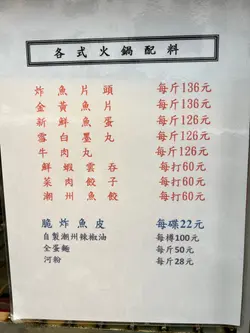 各式火鍋配料
炸魚片頭 每斤136元
金黃魚片 每斤136元
新鮮魚蛋 每斤126元
雪白墨丸 每斤126元
牛肉丸 每斤126元
鮮蝦雲吞 每打60元
菜肉餃子 每打60元
潮州魚餃 每打60元
脆炸魚皮 每碟22元
自製潮州辣椒油 每樽100元
全蛋麵 每斤50元
河粉 每斤28元